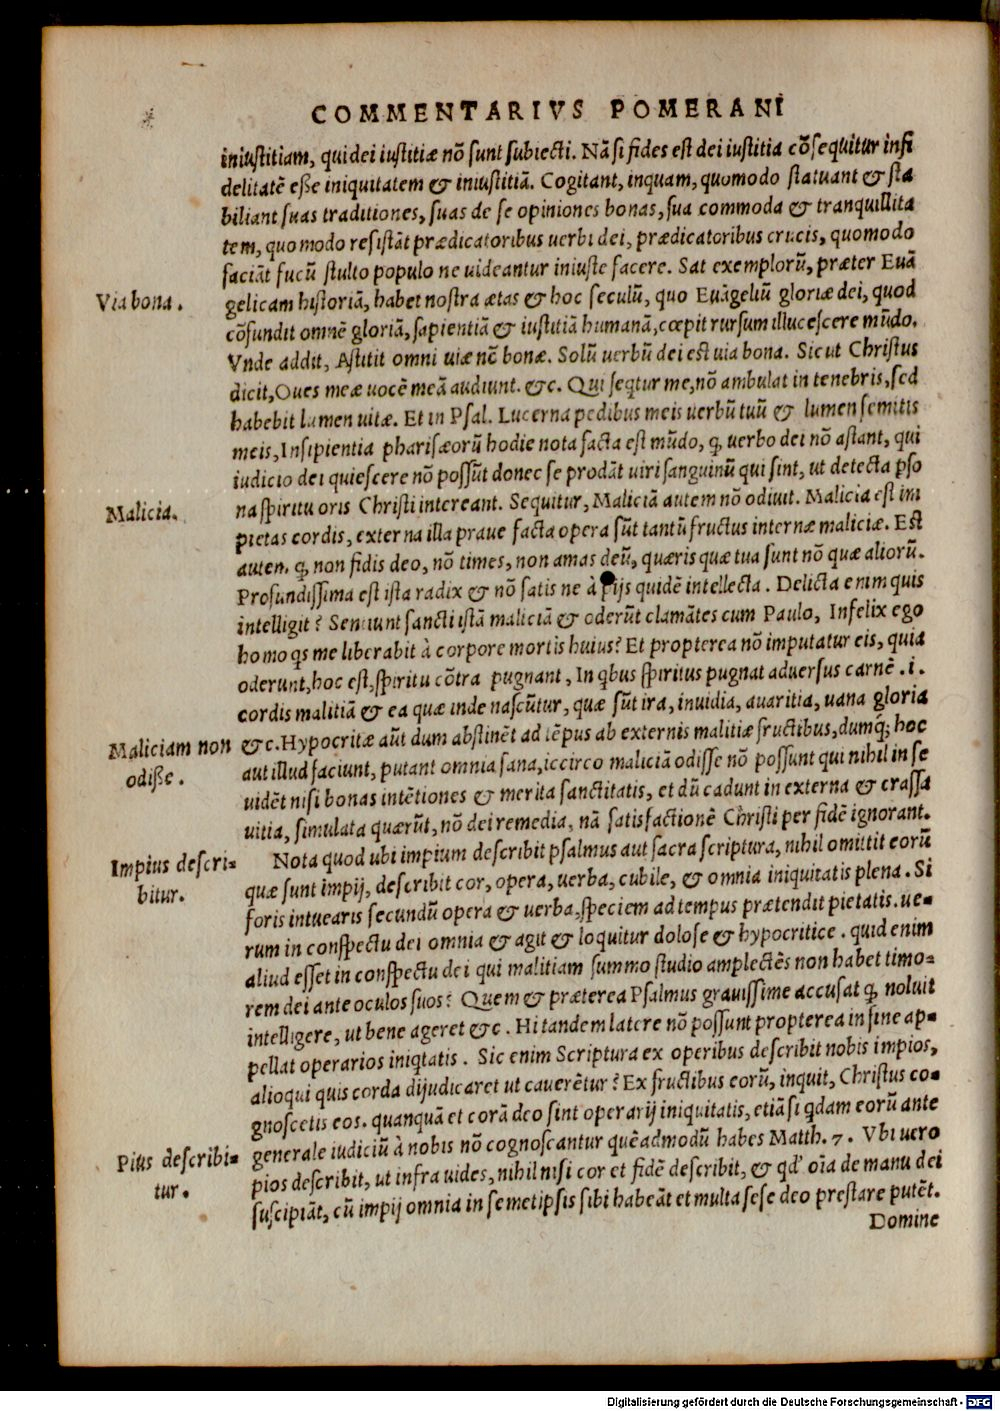 COMMENTARIVS POMERANI
iniustitiam, qui dei iustitiæ nõ sunt subiecti. Nã si fides est dei iustitia cõsequitur infi
delitatẽ eße iniquitatem & iniustitiã. Cogitant, inquam, quomodo statuant & sta
biliant suas traditiones, suas de se opiniones bonas, sua commoda & tranquillita
tem, quomodo resistãt prædicatoribus uerbi dei, prædicatoribus crucis, quomodo
faciãt fucũ stulto populo ne uideantur iniuste facere. Sat exemplorũ, præter Euã
Via bona.
gelicam historiã, habet nostra ætas & hoc seculũ, quo Euãgeliũ gloriæ dei, quod
cõfundit omnẽ gloriã, sapientiã & iustitiã humanã, cœpit rursum illucescere mũdo.
Vnde addit, Astitit omni uiæ nõ bonæ. Solũ uerbũ dei est uia bona. Sicut Christus
dicit, Oues meæ uocẽ meã audiunt. &c. Qui seqtur me, nõ ambulat in tenebris, sed
habebit lumen uitæ. Et in Psal. Lucerna pedibus meis uerbũ tuũ & lumen semitis
meis, Insipientia pharisæorũ hodie nota facta est mũdo, ꝙ uerbo dei nõ astant, qui
iudicio dei quiescere nõ possũt donec se prodãt uiri sanguinũ qui sint, ut detecta pso
Malicia.
na spiritu oris Christi intereant. Sequitur, Maliciã autem nõ odiuit. Malicia est im
pietas cordis, externa illa praue facta opera sũt tantũ fructus internæ maliciæ. Est
autem ꝙ non fidis deo, nõ times, non amas deũ, quæris quæ tua sunt nõ quæ aliorũ.
Profundissima est ista radix & nõ satis ne à pijs quidẽ intellecta. Delicta enim quis
intelligit? Sentiunt sancti istã maliciã & oderũt clamãtes cum Paulo, Infelix ego
homo qs me liberabit à corpore mortis huius? Et propterea nõ imputatur eis, quia
oderunt, hoc est, spiritu cõtra pugnant, In qbus spiritus pugnat aduersus carnẽ .i.
cordis malitiã & ea quæ inde nascũtur, quæ sũt ira, inuidia, auaritia, uana gloria
Maliciam non
odiße.
&c. Hypocritæ aũt dum abstinẽt ad tẽpus ab externis malitiæ fructibus, dumq; hoc
aut illud faciunt, putant omnia sana, iccirco maliciã odisse nõ possunt qui nihil in se
uidẽt nisi bonas intẽtiones & merita sanctitatis, et dũ cadunt in externa & crassa
uitia, simulata quærũt, nõ dei remedia, nã satisfactionẽ Christi per fidẽ ignorant.
Impius descri-
bitur.
Nota quod ubi impium describit psalmus aut sacra scriptura, nihil omittit eorũ
quæ sunt impij, describit cor, opera, uerba, cubile, & omnia iniquitatis plena. Si
foris intuearis secundũ opera & uerba, speciem ad tempus prætendit pietatis. ue-
rum in conspectu dei omnia & agit & loquitur dolose & hypocritice. quid enim
aliud esset in conspectu dei qui malitiam summo studio amplectẽs non habet timo-
rem dei ante oculos suos? Quem & præterea Psalmus grauissime accusat ꝙ noluit
intelligere, ut bene ageret &c. Hi tandem latere nõ possunt propterea in fine ap-
pellat operarios iniqtatis. Sic enim Scriptura ex operibus describit nobis impios,
alioqui quis corda dijudicaret ut cauerẽtur? Ex fructibus eorũ, inquit, Christus co-
gnoscetis eos. quanquã et corã deo sint operarij iniquitatis, etiã si qdam eorũ ante
generale iudiciũ à nobis nõ cognoscantur quẽadmodũ habes Matth. 7. Vbi uero
Pius describi-
tur.
pios describit, ut infra uides, nihil nisi cor et fidẽ describit, & qđ oĩa de manu dei
suscipiãt, cũ impij omnia in semetipsis sibi habeãt et multa sese deo prestare putẽt.
Domine
Digitalisierung gefördert durch die Deutsche Forschungsgemeinschaft - DFG